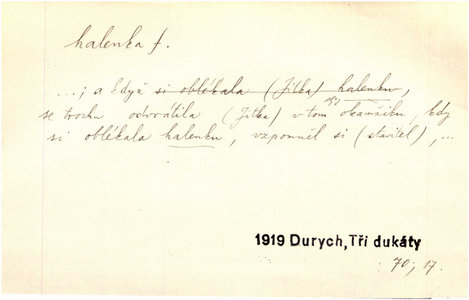 halenka f.
...; a když si oblékala (Jitka) halenku,
se trochu odvrátila (Jitka) v tom okamžiku, kdy
si oblékala halenku, vzpomněl si (stavitel), ...
1919 Durych, Tři dukáty
70, 17.